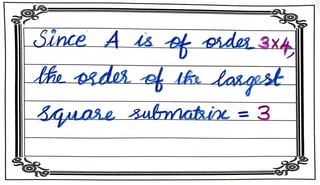 Since A is of order 3×4,
the order of the largest
square submatrix = 3